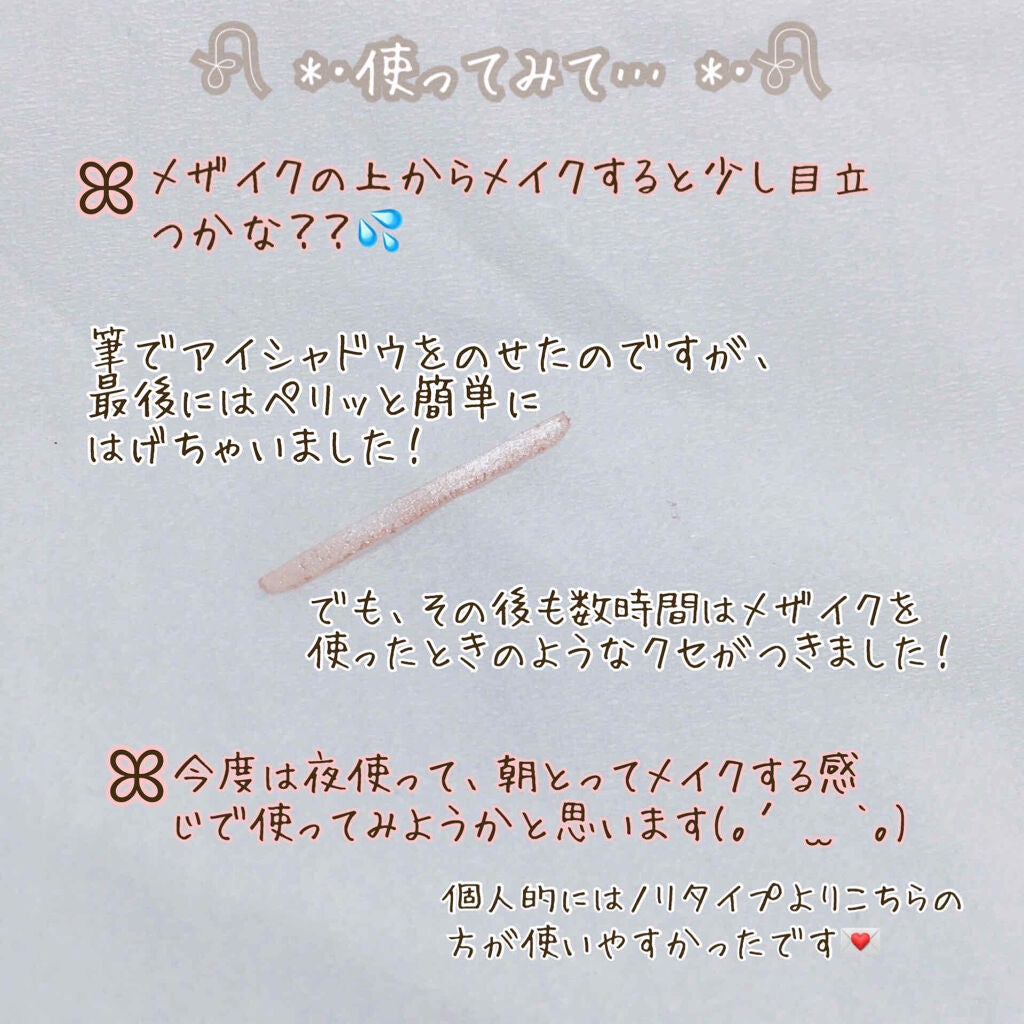 *・使ってみて… *・
メザイクの上からメイクすると少し目立
つかな??💦
筆でアイシャドウをのせたのですが、
最後にはペリッと簡単に
はげちゃいました!
でも、その後も数時間はメザイクを
使ったときのようなクセがつきました!
今度は夜使って、朝とってメイクする感
じで使ってみようかと思います(。′ ‿ ‵。)
個人的にはノリタイプよりこちらの
方が使いやすかったです💌